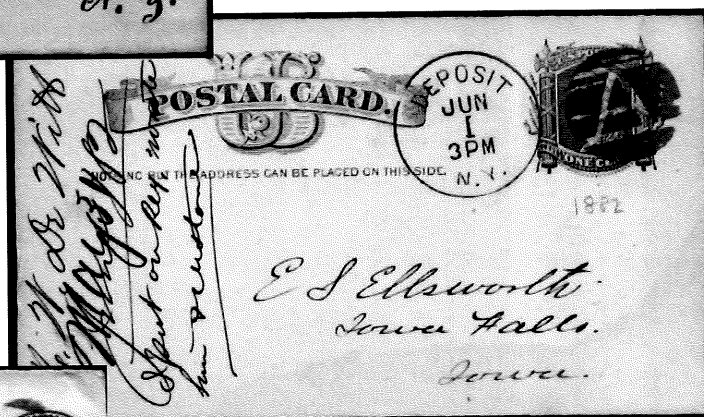 N. Y.
POSTAL CARD.
NOTHING BUT THE ADDRESS CAN BE PLACED ON THIS SIDE.
DEPOSIT
JUN
1
3 PM
N. Y.
ONE CENT
1882
E S Ellsworth
Iowa Falls.
Iowa.
De Witt
May 31/82